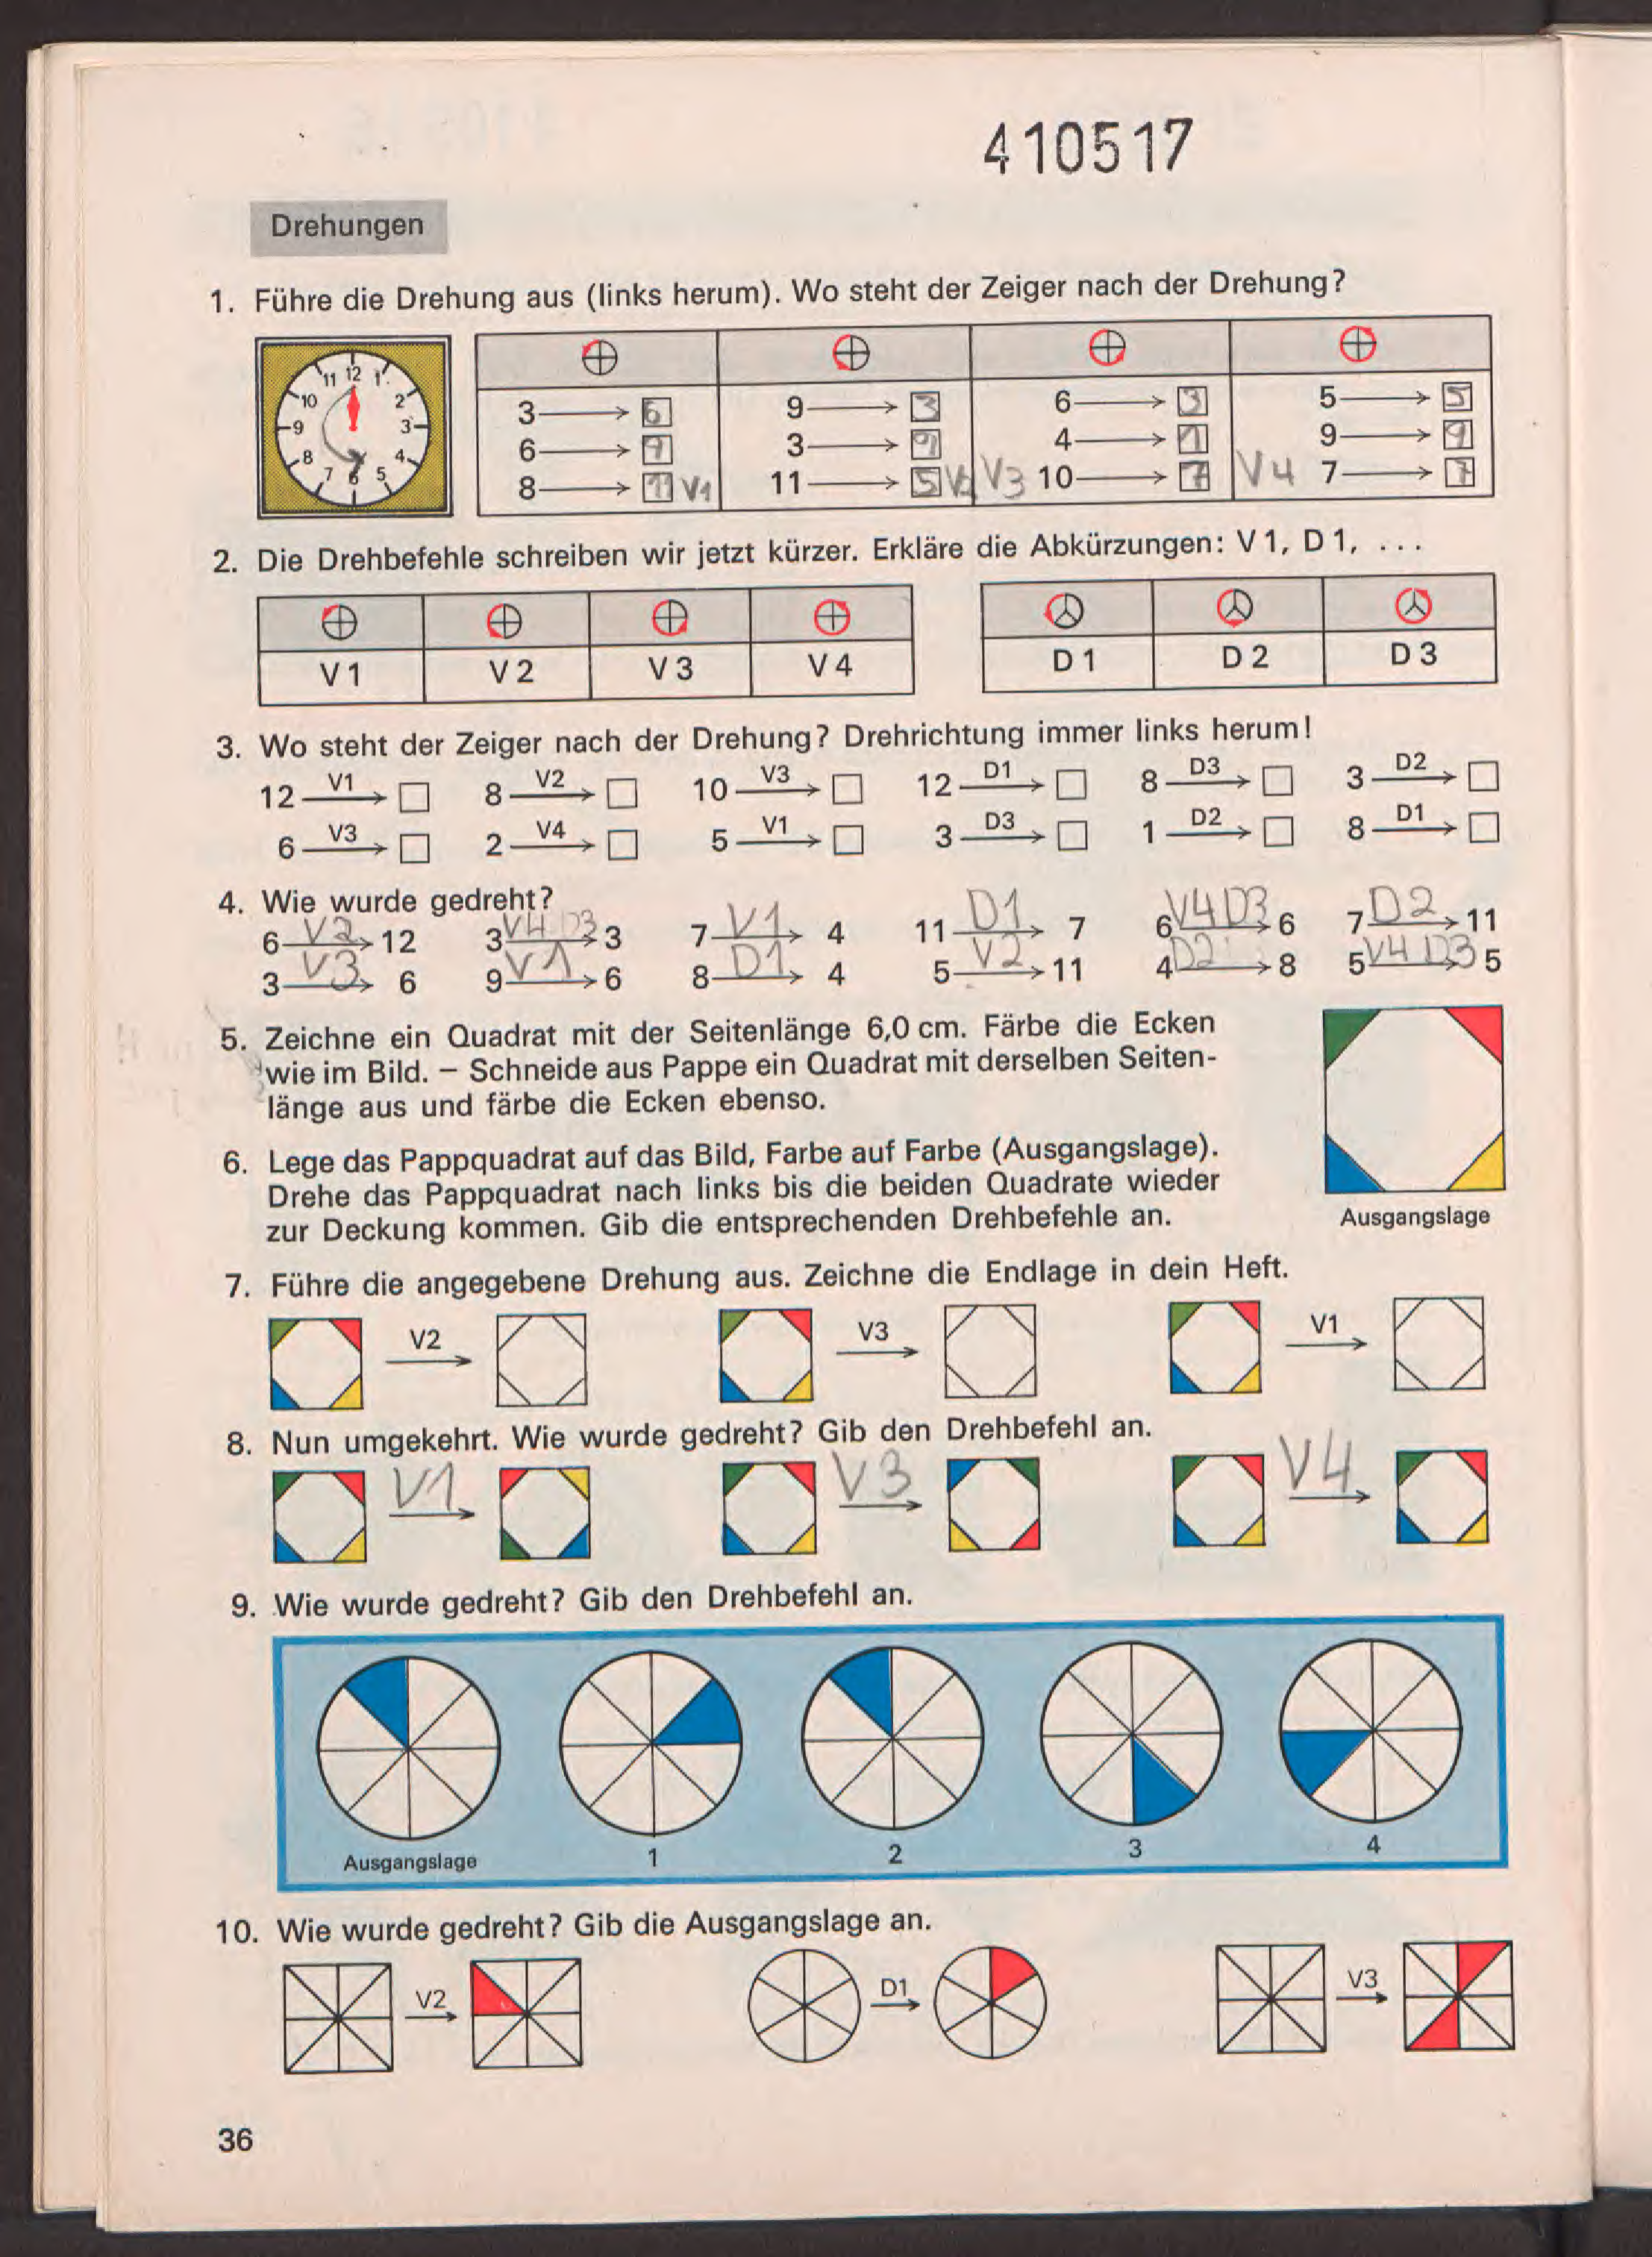 410517
Drehungen
1. Führe die Drehung aus (links herum). Wo steht der Zeiger nach der Drehung?
11 12 1
10 2
9 3
8 4
7 6 5
3 → 6
6 → 9
8 → 11 V1
9 → 3
3 → 9
11 → 5 V2
6 → 3
4 → 1
V3 10 → 7
5 → 5
9 → 9
V4 7 → 7
2. Die Drehbefehle schreiben wir jetzt kürzer. Erkläre die Abkürzungen: V 1, D 1, ...
V 1 V 2 V 3 V 4 D 1 D 2 D 3
3. Wo steht der Zeiger nach der Drehung? Drehrichtung immer links herum!
12 V1 → □ 8 V2 → □ 10 V3 → □ 12 D1 → □ 8 D3 → □ 3 D2 → □
6 V3 → □ 2 V4 → □ 5 V1 → □ 3 D3 → □ 1 D2 → □ 8 D1 → □
4. Wie wurde gedreht?
6 V2 → 12 3 V4 D3 → 3 7 V1 → 4 11 D1 → 7 6 V4 D3 → 6 7 D2 → 11
3 V3 → 6 9 V1 → 6 8 D1 → 4 5 V2 → 11 4 D2 → 8 5 V4 D3 → 5
5. Zeichne ein Quadrat mit der Seitenlänge 6,0 cm. Färbe die Ecken
wie im Bild. – Schneide aus Pappe ein Quadrat mit derselben Seiten-
länge aus und färbe die Ecken ebenso.
6. Lege das Pappquadrat auf das Bild, Farbe auf Farbe (Ausgangslage).
Drehe das Pappquadrat nach links bis die beiden Quadrate wieder
zur Deckung kommen. Gib die entsprechenden Drehbefehle an.
Ausgangslage
7. Führe die angegebene Drehung aus. Zeichne die Endlage in dein Heft.
V2 → V3 → V1 →
8. Nun umgekehrt. Wie wurde gedreht? Gib den Drehbefehl an.
V1 → V3 → V4 →
9. Wie wurde gedreht? Gib den Drehbefehl an.
Ausgangslage 1 2 3 4
10. Wie wurde gedreht? Gib die Ausgangslage an.
V2 → D1 → V3 →
36